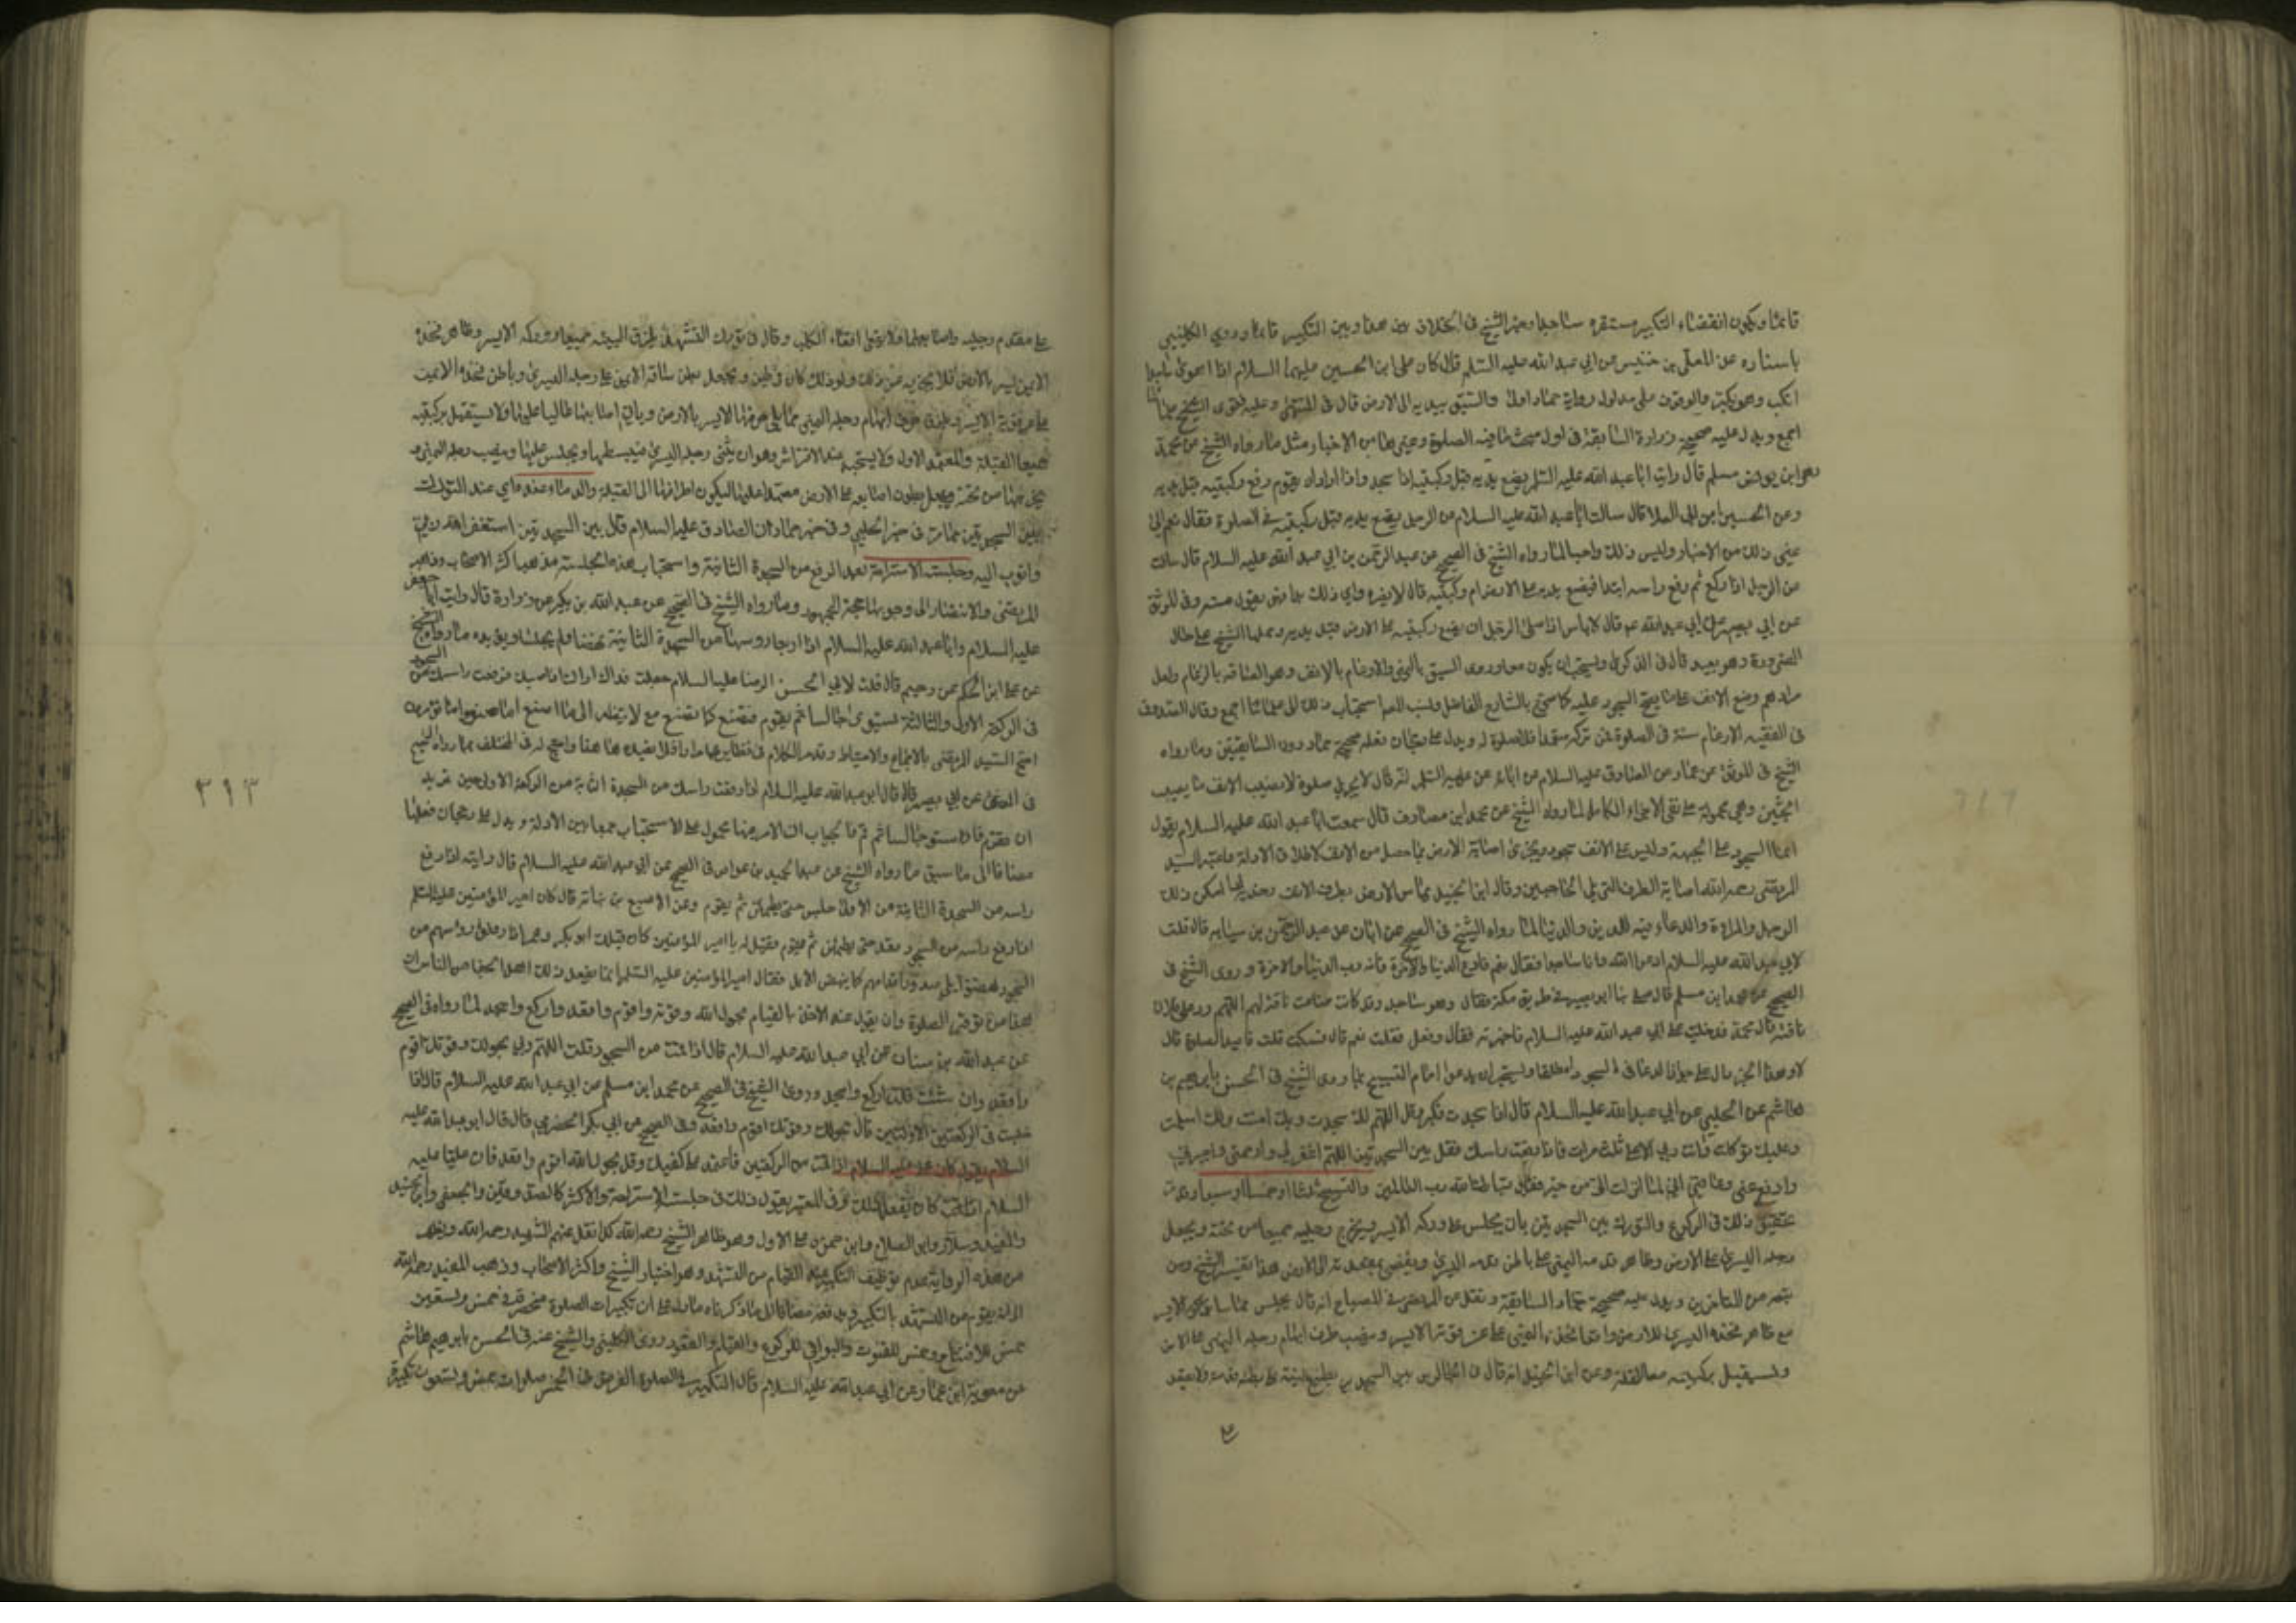 قائما ويكون انقضاء التكبير مستقره ساجدا وجوز الشيخ في الخلاف بين هذا وبين التكبير قائما وروى الكليني
باسناده عن المعلى بن خنيس عن ابي عبد الله عليه السلام قال كان على ابن الحسين عليهما السلام اذا اهوى ساجدا
انكب وهو يكبر والسبق بيديه الى الارض قال في المنتهى وعليه فتوى
اجمع ويدل عليه صحيحة زرارة السابقة في اول مبحث الصلوة من الاخبار مثل ما رواه الشيخ عن محمد
مسلم قال رايت ابا عبد الله عليه السلم يضع يديه قبل ركبتيه اذا سجد واذا اراد ان يقوم رفع ركبتيه قبل يديه
وعن الحسين ابن ابي العلا قال سالت ابا عبد الله عليه السلام عن الرجل يضع يديه قبل ركبتيه في الصلوة فقال نعم الى
غير ذلك من الاخبار وليس ذلك واجبا لما رواه الشيخ في الصحيح عن عبد الرحمن بن ابي عبد الله عليه السلام قال سالته
عن الرجل اذا ركع ثم رفع راسه ابدا فيضع يديه على الارض ام ركبتيه قال لا يضره واي ذلك بدا فهو مقبول منه وفي الموثق
عن ابي بصير عن ابي عبد الله ع قال لا باس اذا صلى الرجل ان يضع ركبتيه على الارض قبل يديه وحملها الشيخ على حال
الضرورة وهو بعيد قال في الذكرى ويستحب ان يكون معا وروى السبق باليمنى والارغام بالانف وهو الصاقه بالرغام ولعل
مرادهم وضع الانف على ما يصح السجود عليه كما صرح الشارح الفاضل ونسب استحباب ذلك الى علمائنا اجمع وقال الصدوق
في الفقيه الارغام سنة في الصلوة فمن تركه متعمدا فلا صلوة له ويدل على رجحان فعله صحيحة حماد السابقتين وما رواه
الشيخ في الموثق عن عمار عن الصادق عليه السلام عن ابائه عن عليه السلم انه قال لا يجزي صلوة لا يصيب الانف ما يصيب
الجبين وهي محمولة على نفي الاجزاء الكامل لما رواه الشيخ عن محمد ابن مصادف قال سمعت ابا عبد الله عليه السلام يقول
انما السجود على الجبهة وليس على الانف سجود ويجزى اصابة الارض بما حصل من الانف لاطلاق الادلة واعتبر السيد
المرتضى رحمه الله اصابة الطرف التي يلي الحاجبين وقال ابن الجنيد يماس الارض بطرف الانف وحدبته اذا امكن ذلك
الرجل والمراة والدعاء فيه للدين والدنيا لما رواه الشيخ في الصحيح عن ابان عن عبد الرحمن بن سيابه قال قلت
لابي عبد الله عليه السلام ادعوا الله وانا ساجد فقال نعم فادع للدنيا والاخرة فانه رب الدنيا والاخرة وروى الشيخ في
الصحيح عن محمد ابن مسلم قال صلى بنا ابو بصير في طريق مكة فقال وهو ساجد وقد كانت ضاعت ناقة لهم اللهم رد على فلان
ناقته قال محمد فدخلت على ابي عبد الله عليه السلام فاخبرته فقال وفعل فقلت نعم قال فسكت قلت فاعيد الصلوة قال
لا وهذا الخبر دال على جواز الدعا في السجود مطلقا ويستحب ان يدعوا امام التسبيح بما روى الشيخ في الحسن بابرهيم بن
هاشم عن الحلبي عن ابي عبد الله عليه السلام قال اذا سجدت فكبر وقل اللهم لك سجدت وبك امنت ولك اسلمت
وعليك توكلت وانت ربي ثلث مرات فاذا رفعت راسك فقل بين السجدتين اللهم اغفر لي وارحمني واجبرني
وادفع عني وعافني اني لما انزلت الي من خير فقير تبارك الله رب العالمين والتسبيح ثلثا او خمسا او سبعا وقد مر
تحقيق ذلك في الركوع والتورك بين السجدتين بان يجلس على وركه الايسر ويخرج رجليه جميعا من تحته ويجعل
رجله اليسرى على الارض وظاهر قدمه اليمنى على باطن قدمه اليسرى ويفضى بمقعدته الى الارض هذا تفسير الشيخ ومن
تبعه من المتاخرين ويدل عليه صحيحة حماد السابقة ونقل عن المرتضى في المصباح انه قال يجلس مماسا بوركه الايسر
مع ظاهر فخذه اليسرى للارض رافعا فخذه اليمنى على عرقوبه الايسر وينصب طرف ابهام رجله اليمنى على الارض
ويستقبل بركبتيه معا القبلة وعن ابن الجنيد انه قال في الجلوس بين السجدتين يضع اليتيه على بطن قدميه ولا يقعد
على
على مقدم رجليه واصابعهما ولا يقعى اقعاء الكلب وقال في تورك التشهد يلزق اليتيه جميعا ووركه الايسر وظاهر فخذه
الايمن بالارض فلا يجزيه غير ذلك ولو ذلك كان في طين ويجعل بطن ساقه الايمن على رجله اليسرى وباطن فخذه الايمن
على عرقوبه الايسر ويلزق حرف ابهام رجله اليمنى مما يلي حرفها الايسر بالارض وباقي اصابعها عاليا عليها ولا يستقبل بركبتيه
جميعا القبلة والمعتمد الاول ولا يستحب عندنا الافتراش وهو ان يثنى رجله اليسرى فيبسطها ويجلس عليها وينصب رجله اليمنى و
يخرجها من تحته ويجعل بطون اصابعه على الارض معتمدا عليها ليكون اطرافها الى القبلة والدعاء عنده اي عند التورك
بين السجدتين بما مر في خبر الحلبي وفي خبر حماد ان الصادق عليه السلام قال بين السجدتين استغفر الله ربي
واتوب اليه وجلسة الاستراحة بعد الرفع من السجدة الثانية واستحباب هذه الجلسة مذهب اكثر الاصحاب وذهب
المرتضى والانتصار الى وجوبها حجة الجمهور وما رواه الشيخ في الصحيح عن عبد الله بن بكير عن زرارة قال رايت ابا جعفر
عليه السلام وابا عبد الله عليه السلام اذا رفعا رؤسهما من السجدة الثانية نهضا ولم يجلسا ويؤيده ما رواه الشيخ
عن على ابن الحكم عن رحيم قال قلت لابي الحسن الرضا عليه السلام جعلت فداك اراك اذا صليت فرفعت راسك من السجود
في الركعة الاولى والثالثة تستوى جالسا ثم تقوم فنصنع كما تصنع قال لا تنظروا الى ما اصنع انا اصنعوا ما تؤمرون
احتج السيد المرتضى بالاجماع والاحتياط وقدم الكلام في نظايرهما مرارا فلا نعيده هنا واحتج له في المختلف بما رواه الشيخ
في الصحيح عن ابي بصير قال قال ابو عبد الله عليه السلام اذا رفعت راسك من السجدة الثانية من الركعة الاولى حين تريد
ان تقوم فاستو جالسا ثم قم فالجواب ان الامر فيها محمول على الاستحباب جمعا بين الادلة ويدل على رجحان فعلها
مضافا الى ما سبق ما رواه الشيخ عن عبد الحميد بن عواض في الصحيح عن ابي عبد الله عليه السلام قال رايته اذا رفع
راسه من السجدة الثانية من الاولى جلس حتى يطمئن ثم يقوم وعن الاصبغ بن نباتة قال كان امير المؤمنين عليه السلم
اذا رفع راسه من السجود قعد حتى يطمئن ثم يقوم فقيل له يا امير المؤمنين كان قبلك ابو بكر وعمر اذا رفعوا رؤسهم من
السجود نهضوا على صدور اقدامهم كما ينهض الابل فقال امير المؤمنين عليه السلم انما يفعل ذلك اهل الجفا من الناس ان
هذا من توقير الصلوة وان يقول عند الاخذ بالقيام بحول الله وقوته واقوم واقعد واركع واسجد لما رواه في الصحيح
عن عبد الله بن سنان عن ابي عبد الله عليه السلام قال اذا قمت من السجود قلت اللهم ربي بحولك وقوتك اقوم
واقعد وان شئت قلت واركع واسجد وروى الشيخ في الصحيح عن محمد ابن مسلم عن ابي عبد الله عليه السلام قال اذا
جلست في الركعتين الاولتين قال بحولك وقوتك اقوم واقعد وفي الصحيح عن ابي بكر الحضرمي قال قال ابو عبد الله عليه
السلام اذا قمت من الركعتين فاعتمد على كفيك وقل بحول الله اقوم واقعد فان عليا عليه
السلام كان يفعل ذلك وفي المعتبر يقول ذلك في جلسة الاستراحة والاكثر كالصدوقين والجعفي وابن الجنيد
والمفيد وسلار وابو الصلاح وابن حمزة على الاول وهو ظاهر الشيخ رحمه الله كذا نقل عنهم الشهيد رحمه الله ويظهر
من هذه الرواية عدم توظيف التكبير عند القيام من التشهد وهو اختيار الشيخ واكثر الاصحاب وذهب المفيد رحمه الله
الى انه يقوم من التشهد بالتكبير ويدفعه مضافا الى ما ذكرناه ما دل على ان تكبيرات الصلوة منحصرة في خمس وتسعين
خمس للافتتاح وخمس للقنوت والبواقي للركوع والقيام والقعود روى الكليني والشيخ عنه في الحسن بابرهيم بن هاشم
عن معوية ابن عمار عن ابي عبد الله عليه السلام قال التكبير في الصلوة الفرض في الخمس صلوات خمس وتسعون تكبيرة
٣١٣